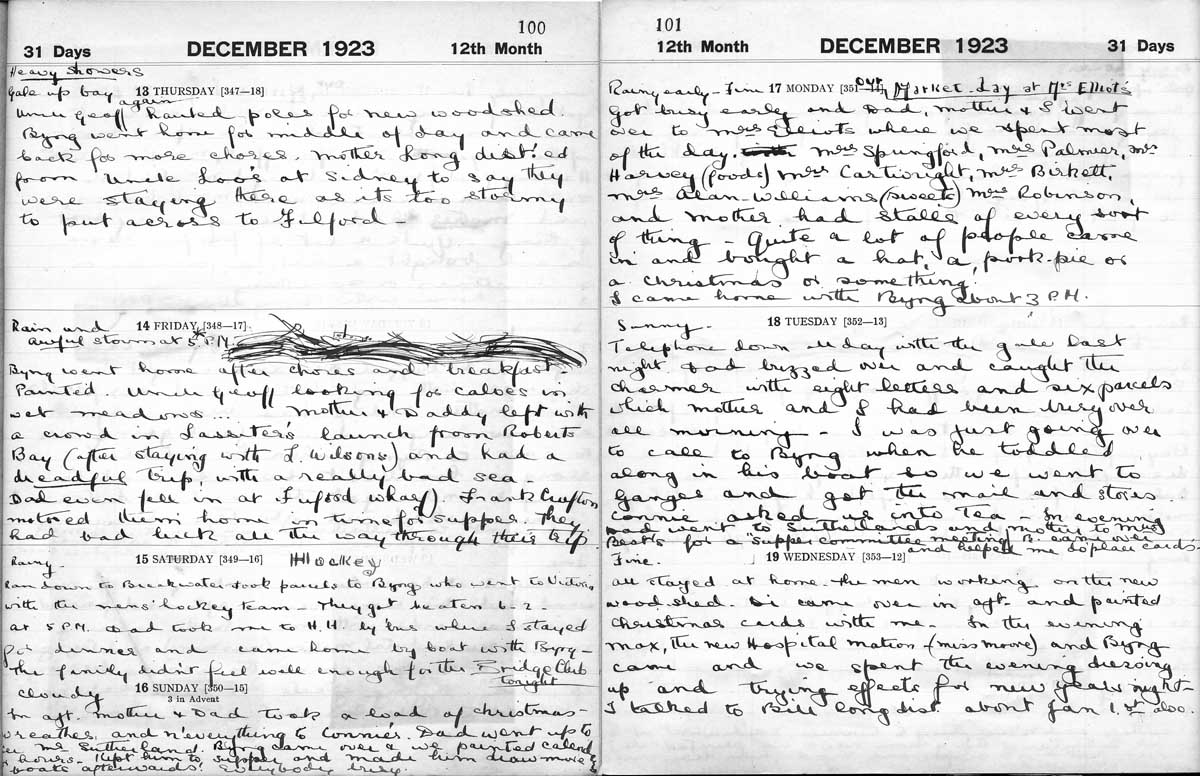 100
31 Days DECEMBER 1923 12th Month
Heavy showers
Gale up bay 13 THURSDAY [347—18]
again
Uncle Geoff hauled poles for new woodshed.
Byng went home for middle of day and came
back for more chores. Mother long dist'ed
from Uncle Loo's at Sidney to say they
were staying there as its too stormy
to put across to Fulford —
Rain and 14 FRIDAY [348—17]
awful storm at 5 P.M.
Byng went home after chores and breakfast.
Painted. Uncle Geoff looking for calves in
wet meadows... Mother & Daddy left with
a crowd in Lassiter's launch from Roberts
Bay (after staying with L. Wilsons) and had a
dreadful trip with a really bad sea.
Dad even fell in at Fulford wharf). Frank Crofton
motored them home in time for supper. They
had bad luck all the way through their trip
Rainy. 15 SATURDAY [349—16] Hockey
Ran down to Breakwater took parcels to Byng who went to Victoria
with the mens' hockey team — They got beaten 6-2.
at 5 P.M. Dad took me to H.H. by bus where I stayed
for dinner and came home by boat with Byng —
The family didn't feel well enough for the Bridge Club
tonight
cloudy 16 SUNDAY [350—15]
3 in Advent
In aft. Mother & Dad took a load of christmas-
wreathes, and n'everything to Connie's. Dad went up to
Mr Sutherland. Byng came over & we painted calend
hours. Kept him to supper and made him draw more
boats afterwards. Everybody busy.
101
12th Month DECEMBER 1923 31 Days
Rainy early - Fine 17 MONDAY [351—14] our Market day at Mrs Elliot's
Got busy early and Dad, mother & I went
over to Mrs Elliots where we spent most
of the day. Mrs Spurgford, Mrs Palmer, Mrs
Harvey (foods) Mrs Cartwright, Mrs Birkett,
Mrs Alan-Williams (sweets) Mrs Robinson,
and mother had stalls of every sort
of thing — Quite a lot of people came
in and bought a hat, a pork-pie or
a christmas or something.
I came home with Byng about 3 P.M.
Sunny. 18 TUESDAY [352—13]
Telephone down all day with the gale last
night. Dad buzzed over and caught the
Charmer with eight letters and six parcels
which mother and I had been busy over
all morning — I was just going over
to call to Byng when he toddled
along in his boat so we went to
Ganges and got the mail and stores.
Connie asked us into Tea — In evening
Dad went to Sutherlands and mother to Mrs
Best's for a "supper committee meeting" B. came over
and helped me do place cards
Fine. 19 WEDNESDAY [353—12]
all stayed at home. The men working on the new
woodshed. Di came over in aft. and painted
christmas cards with me. In the evening
Max, the new Hospital matron (miss moore) and Byng
came and we spent the evening dressing
up and trying effects for new years night —
I talked to Bill long dist. about Jan 1.st also.